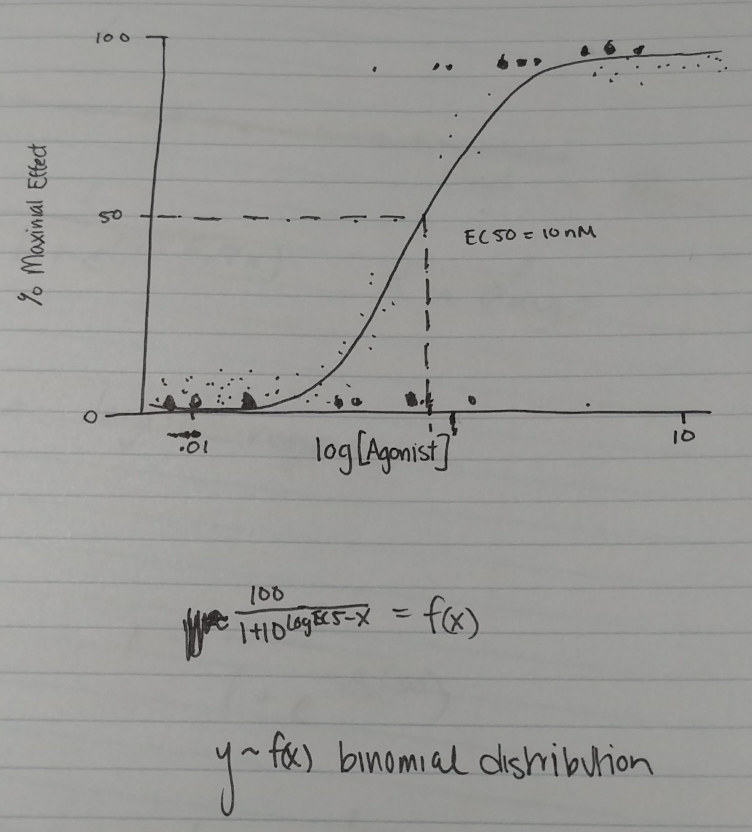 100
% Maximial Effect
50
EC50 = 10 nM
0
.01
log[Agonist]
10
100
1+10^logEC5-X = f(x)
y ~ f(x) binomial distribution